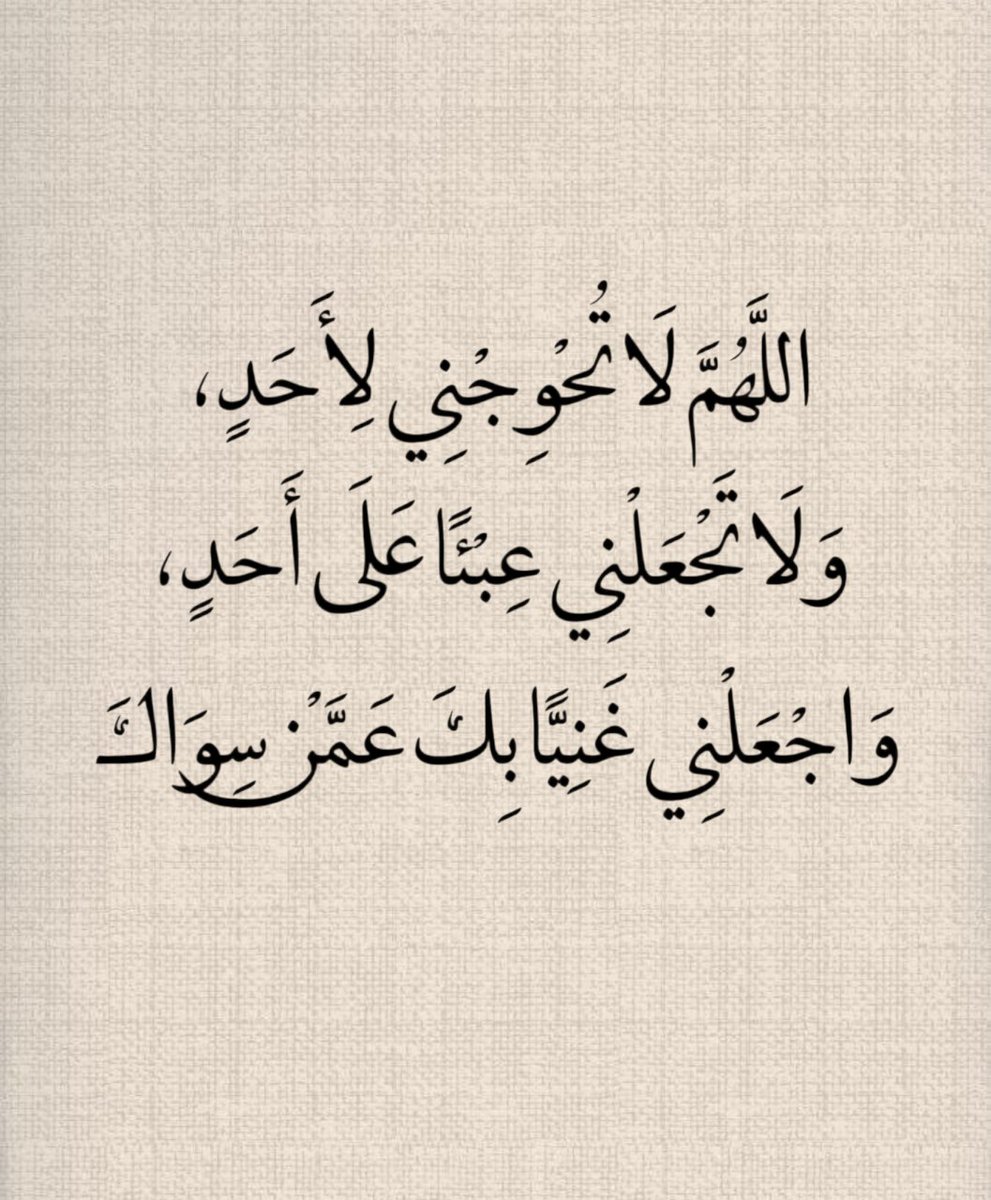 اللَّهُمَّ لَا تُحْوِجْنِي لِأَحَدٍ،
وَلَا تَجْعَلْنِي عِبْئًا عَلَى أَحَدٍ،
وَاجْعَلْنِي غَنِيًّا بِكَ عَمَّنْ سِوَاكَ